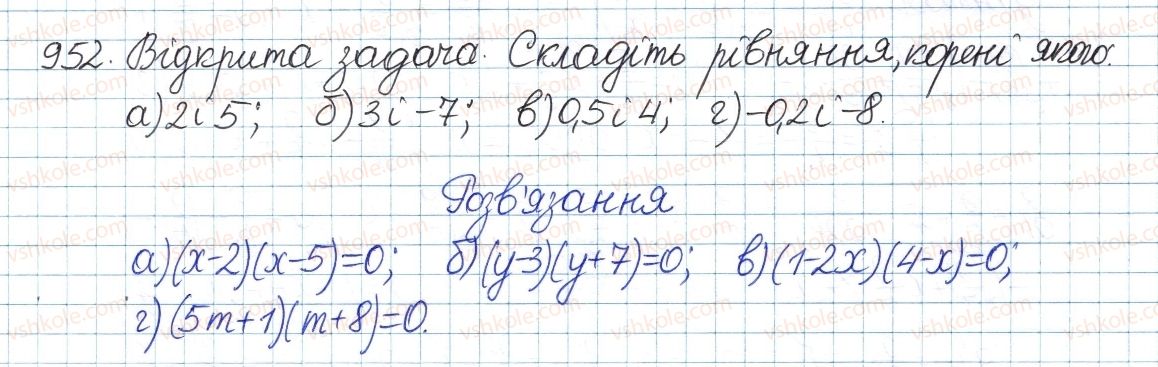 952. Відкрита задача. Складіть рівняння, корені якого:
а) 2 і 5; б) 3 і -7; в) 0,5 і 4; г) -0,2 і -8.
Розв'язання
а) (x-2)(x-5)=0; б) (y-3)(y+7)=0; в) (1-2x)(4-x)=0;
г) (5m+1)(m+8)=0.